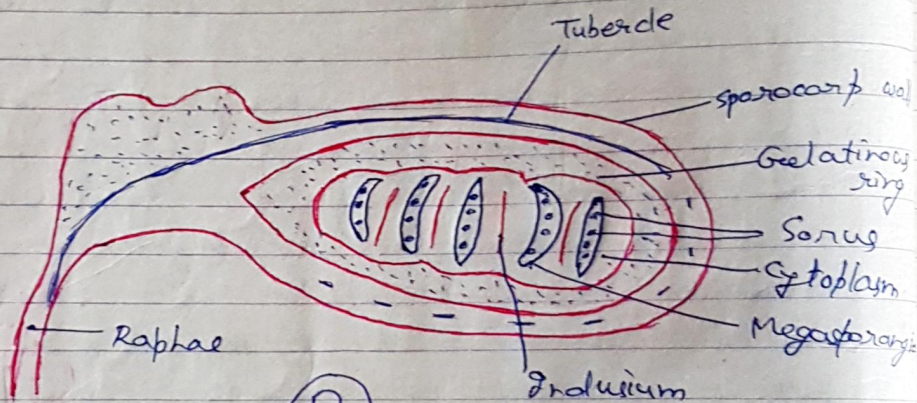 Tubercle
Sporocarp wal
Gelatinous
ring
Sorus
Cytoplasm
Megasporangi
Raphae
Indusium